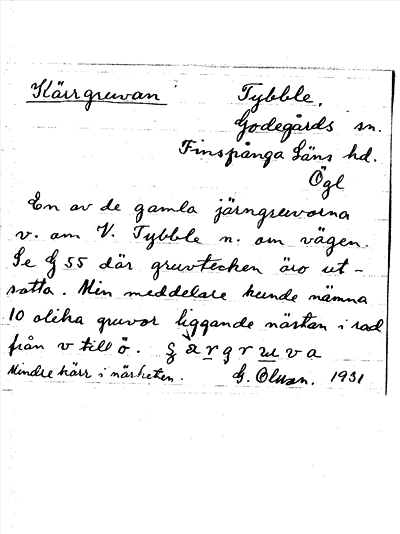 Kärrgruvan
Tybble,
Godegårds sn.
Finspånga Läns hd.
Ögl
En av de gamla järngruvorna
v. om V. Tybble n. om vägen.
Se G 55 där gruvtecken äro ut-
satta. Min meddelare kunde nämna
10 olika gruvor liggande nästan i rad
från v till ö. ȿ à r g r u v a
Mindre kärr i närheten. G. Olsson. 1931